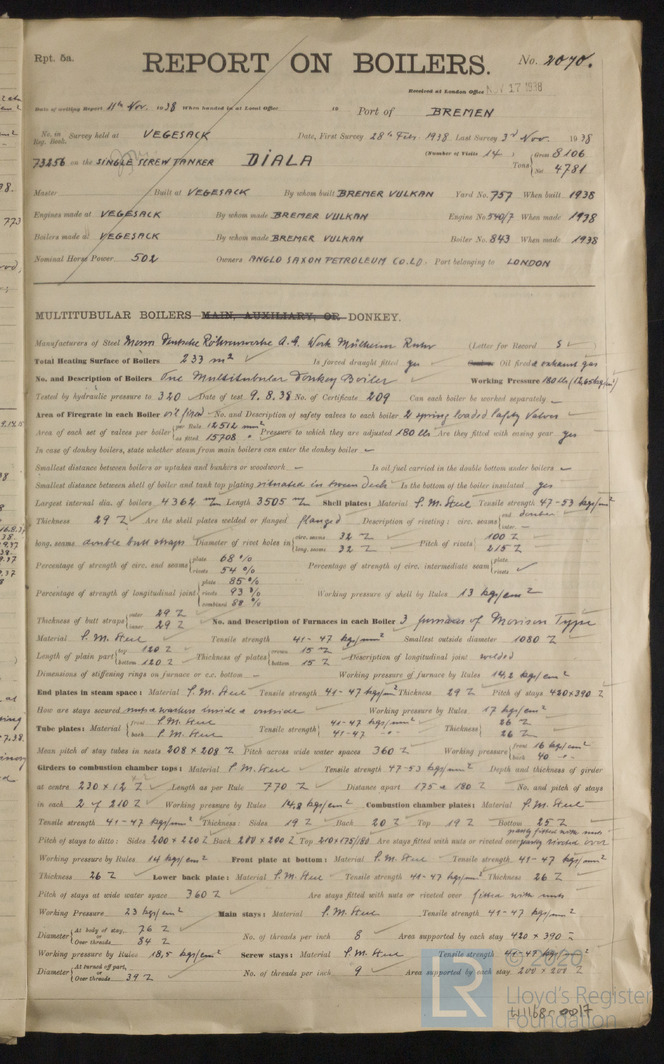 Rpt. 5a.
REPORT ON BOILERS.
No. 2070.
Received at London Office NOV 17 1938
Date of writing Report 11th Nov. 1938 When handed in at Local Office 19 Port of BREMEN
No. in Reg. Book. Survey held at VEGESACK Date, First Survey 28th Febr. 1938 Last Survey 3rd Nov. 1938
(Number of Visits 14)
73256 on the SINGLE SCREW TANKER DIALA Tons Gross 8106 Net 4781
Master Built at VEGESACK By whom built BREMER VULKAN Yard No. 757 When built 1938
Engines made at VEGESACK By whom made BREMER VULKAN Engine No. 540/7 When made 1938
Boilers made at VEGESACK By whom made BREMER VULKAN Boiler No. 843 When made 1938
Nominal Horse Power 502 Owners ANGLO SAXON PETROLEUM CO. LD. Port belonging to LONDON
MULTITUBULAR BOILERS MAIN, AUXILIARY, OR DONKEY.
Manufacturers of Steel Messrs Deutsche Röhrenwerke A.G. Werk Mülheim Ruhr (Letter for Record S)
Total Heating Surface of Boilers 233 m² Is forced draught fitted yes Oil fired & exhaust gas
No. and Description of Boilers One Multitubular Donkey Boiler Working Pressure 180 lbs (12,65 kg/cm²)
Tested by hydraulic pressure to 320 Date of test 9.8.38 No. of Certificate 209 Can each boiler be worked separately
Area of Firegrate in each Boiler oil fired No. and Description of safety valves to each boiler 2 spring loaded safety valves
Area of each set of valves per boiler per Rule 12512 mm² as fitted 15708 " Pressure to which they are adjusted 180 lbs Are they fitted with easing gear yes
In case of donkey boilers, state whether steam from main boilers can enter the donkey boiler
Smallest distance between boilers or uptakes and bunkers or woodwork Is oil fuel carried in the double bottom under boilers
Smallest distance between shell of boiler and tank top plating situated in tween deck Is the bottom of the boiler insulated yes
Largest internal dia. of boilers 4362 m/m Length 3505 m/m Shell plates: Material S.M. Steel Tensile strength 47-53 kgs/mm²
Thickness 29 Are the shell plates welded or flanged flanged Description of riveting: circ. seams end double inter.
long. seams double butt straps Diameter of rivet holes in circ. seams 32 long. seams 32 Pitch of rivets 100 215
Percentage of strength of circ. end seams plate 68 % rivets 54 % Percentage of strength of circ. intermediate seam plate rivets
Percentage of strength of longitudinal joint plate 85 % rivets 93 % combined 88 % Working pressure of shell by Rules 13 kgs/cm²
Thickness of butt straps outer 29 inner 29 No. and Description of Furnaces in each Boiler 3 furnaces of Morison Type
Material S.M. Steel Tensile strength 41-47 kgs/mm² Smallest outside diameter 1080
Length of plain part top 120 bottom 120 Thickness of plates crown 15 bottom 15 Description of longitudinal joint welded
Dimensions of stiffening rings on furnace or c.c. bottom Working pressure of furnace by Rules 14,2 kgs/cm²
End plates in steam space: Material S.M. Steel Tensile strength 41-47 kgs/mm² Thickness 29 Pitch of stays 420x390
How are stays secured nuts & washers inside & outside Working pressure by Rules 17 kgs/cm²
Tube plates: Material front S.M. Steel back S.M. Steel Tensile strength 41-47 kgs/mm² 41-47 Thickness 26 26
Mean pitch of stay tubes in nests 208 x 208 Pitch across wide water spaces 360 Working pressure front 16 kgs/cm² back 40
Girders to combustion chamber tops: Material S.M. Steel Tensile strength 47-53 kgs/mm² Depth and thickness of girder
at centre 230 x 12 Length as per Rule 770 Distance apart 175 & 180 No. and pitch of stays
in each 2 of 210 Working pressure by Rules 14,8 kgs/cm² Combustion chamber plates: Material S.M. Steel
Tensile strength 41-47 kgs/mm² Thickness: Sides 19 Back 20 Top 19 Bottom 25
Pitch of stays to ditto: Sides 200 x 220 Back 200 x 200 Top 210x175/180 Are stays fitted with nuts or riveted over partly fitted with nuts partly riveted over
Working pressure by Rules 14 kgs/cm² Front plate at bottom: Material S.M. Steel Tensile strength 41-47 kgs/mm²
Thickness 26 Lower back plate: Material S.M. Steel Tensile strength 41-47 kgs/mm² Thickness 26
Pitch of stays at wide water space 360 Are stays fitted with nuts or riveted over fitted with nuts
Working Pressure 23 kgs/cm² Main stays: Material S.M. Steel Tensile strength 41-47 kgs/mm²
Diameter At body of stay, 76 or Over threads 84 No. of threads per inch 8 Area supported by each stay 420 x 390
Working pressure by Rules 18,5 kgs/cm² Screw stays: Material S.M. Steel Tensile strength 41-47 kgs/mm²
Diameter At turned off part, or Over threads 39 No. of threads per inch 9 Area supported by each stay 200 x 200
© 2020
LR
Lloyd's Register
Foundation
W1168-0017